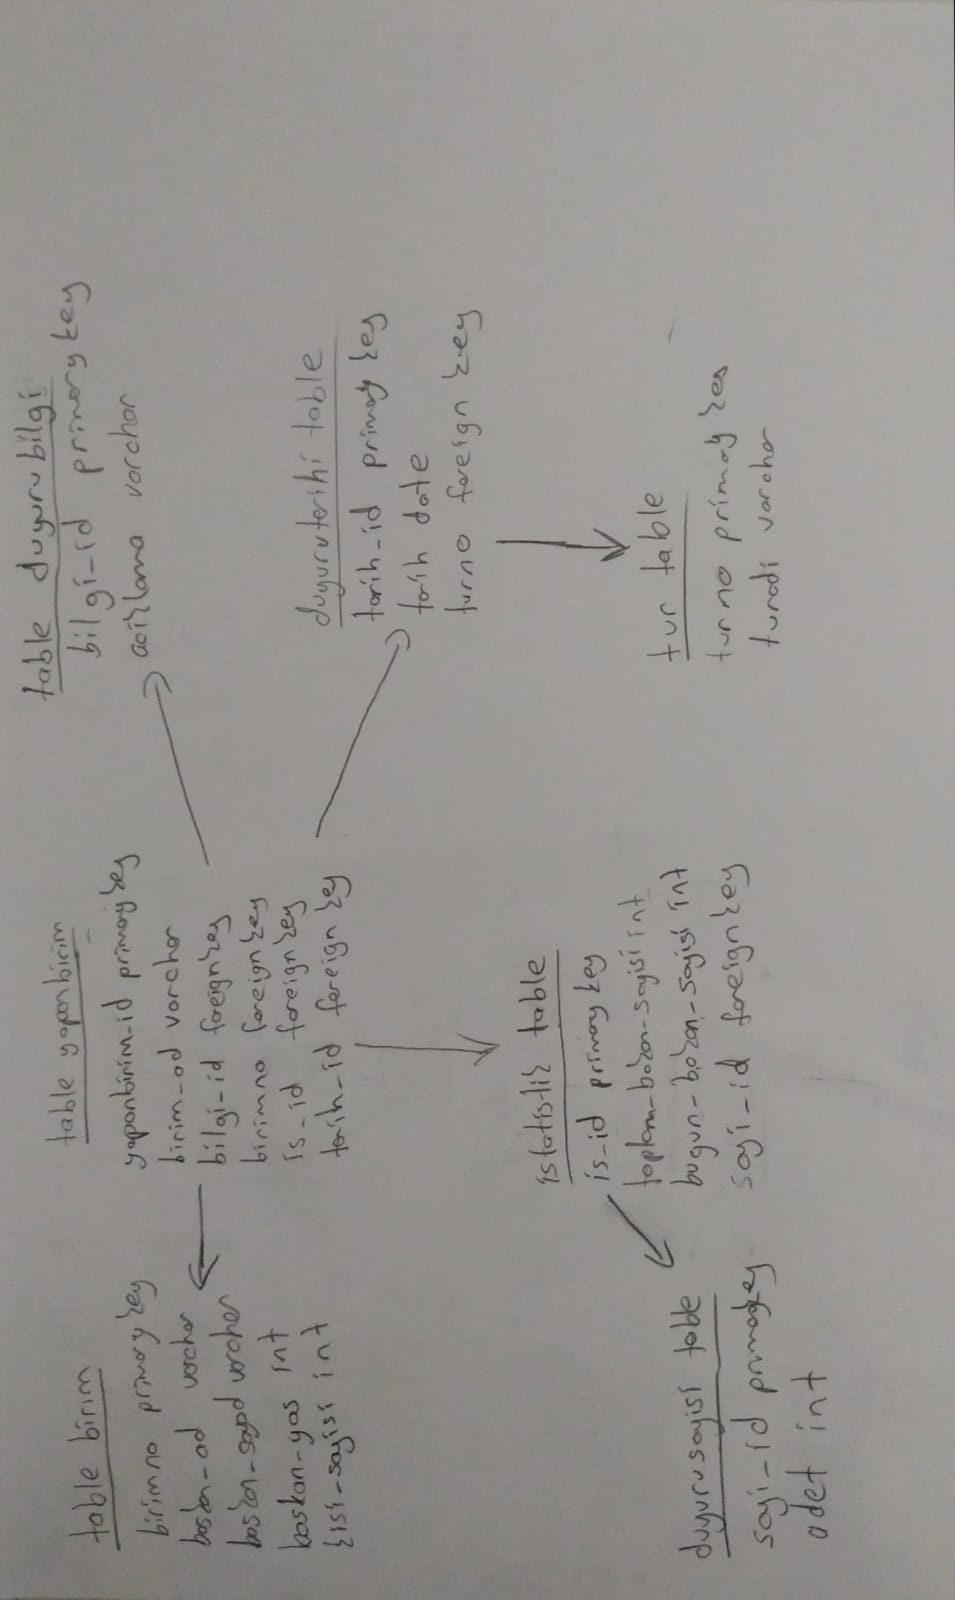 table birim
birimno primary key
baskan-ad varchar
baskan-soyad varchar
baskan-yas int
kisi-sayisi int
table yapanbirim
yapanbirim-id primary key
birim-ad varchar
bilgi-id foreign key
birimno foreign key
is-id foreign key
tarih-id foreign key
table duyurubilgi
bilgi-id primary key
aciklama varchar
duyurutarihi table
tarih-id primary key
tarih date
turno foreign key
duyurusayisi table
sayi-id primary key
adet int
istatistik table
is-id primary key
toplam-bakan-sayisi int
bugun-bakan-sayisi int
sayi-id foreign key
tur table
turno primary key
turadi varchar